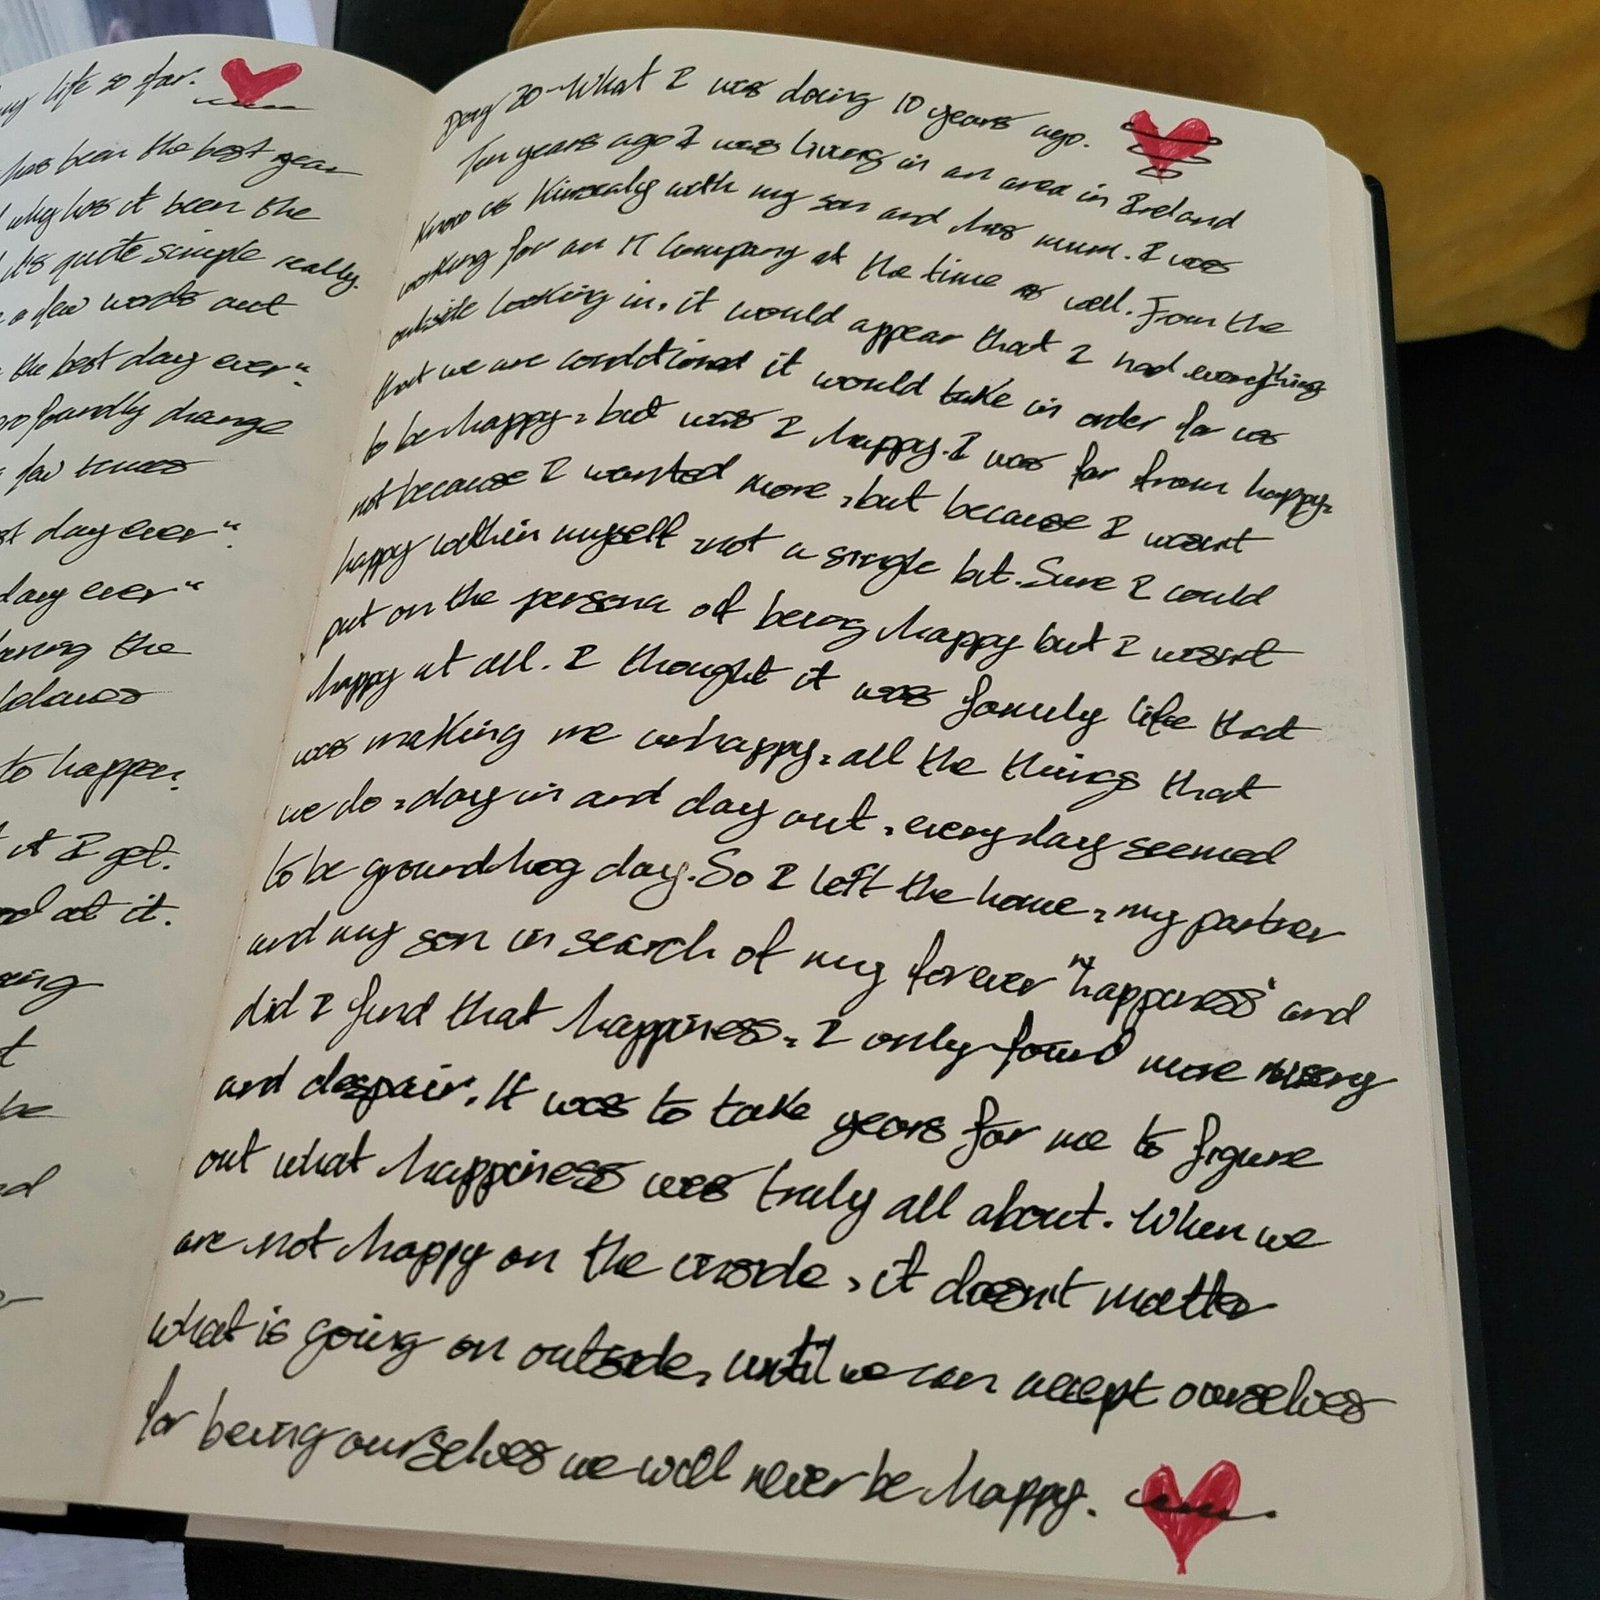 my life so far.
has been the best year
why has it been the
it's quite simple really.
a few words out
the best day ever"
profoundly change
a few times
st day ever"
day ever"
the
to happen.
it I get.
at it.
be
Day 20-What I was doing 10 years ago.
Ten years ago I was living in an area in Ireland
know as Kinsealy with my son and his mum. I was
working for an IT Company at the time as well. From the
outside looking in, it would appear that I had everything
that we are conditioned it would take in order for us
to be happy, but was I happy. I was far from happy,
not because I wanted more, but because I wasnt
happy within myself not a single bit. Sure I could
put on the persona of being happy but I wasnt
happy at all. I thought it was family life that
was making me unhappy, all the things that
we do, day in and day out, every day seemed
to be groundhog day. So I left the home, my partner
and my son in search of my forever "happiness" and
did I find that happiness, I only found more misery
and despair. It was to take years for me to figure
out what happiness was truly all about. When we
are not happy on the inside, it doesn't matter
what is going on outside, until we can accept ourselves
for being ourselves we will never be happy.